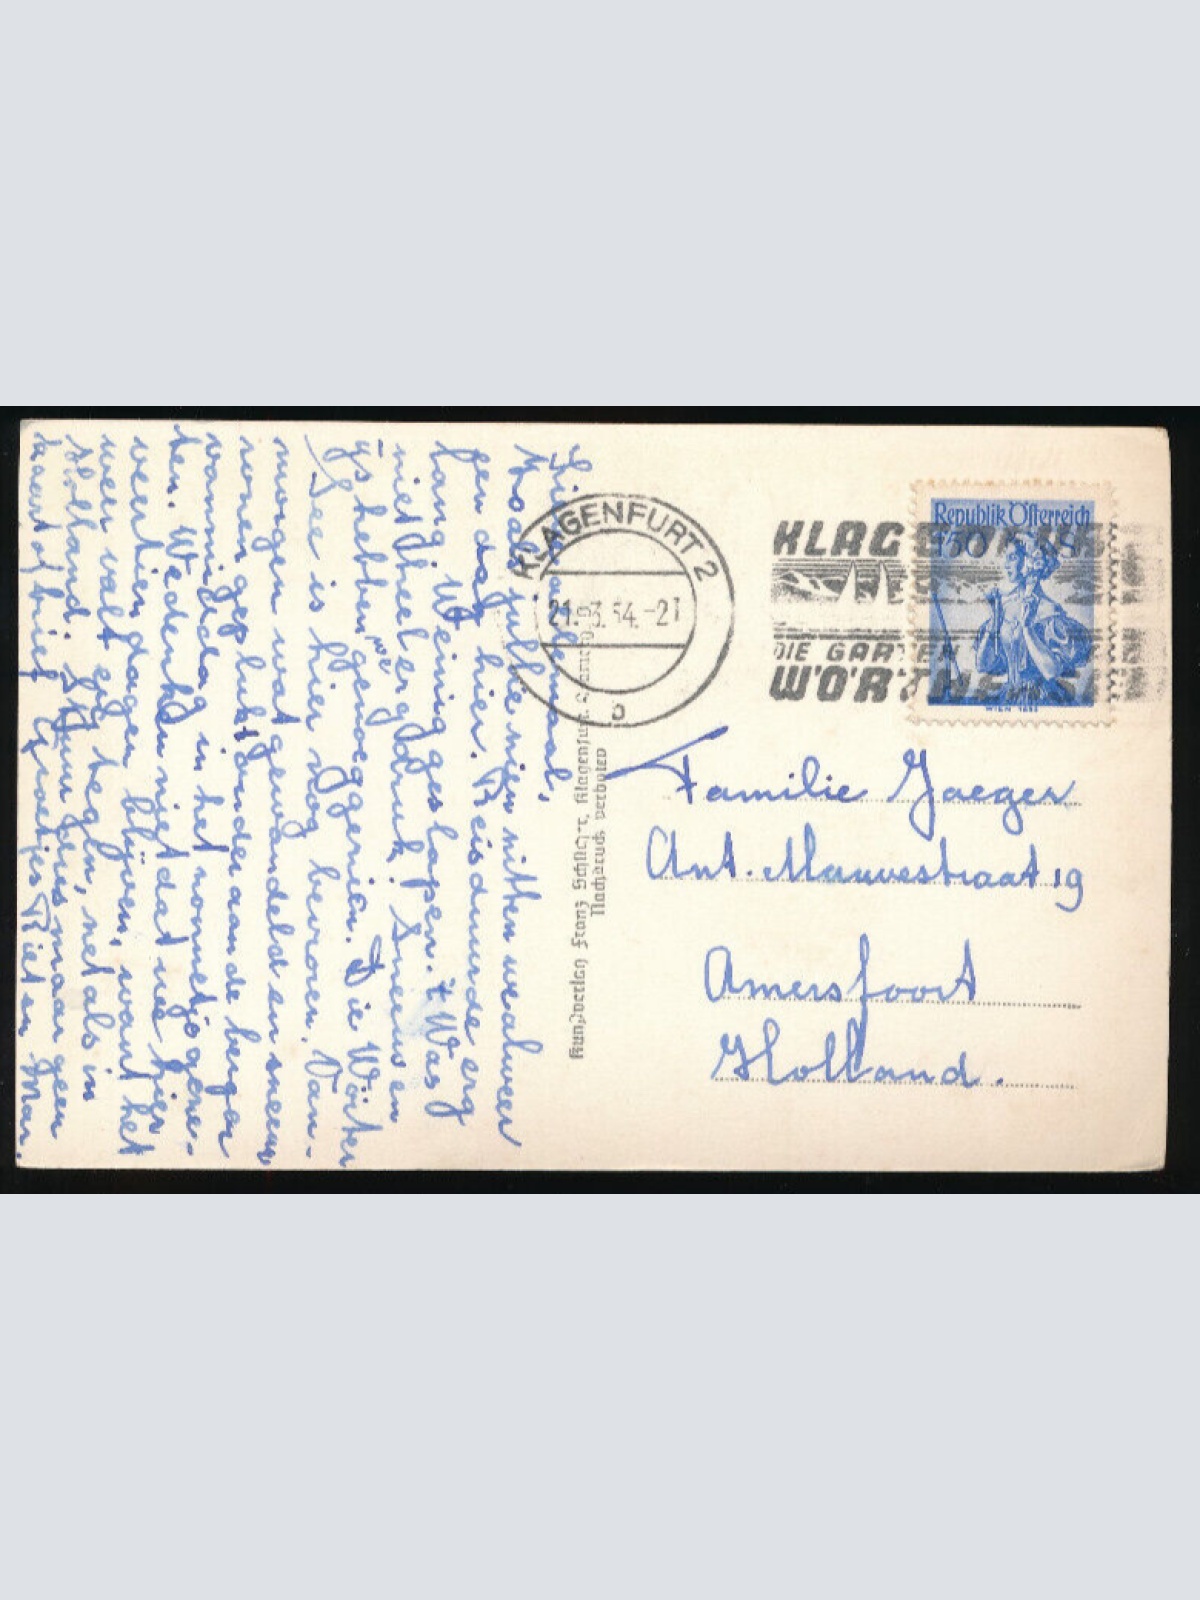 Lieve allemaal,
Zoals jullie zien zitten we alweer
een dag hier. Reis duurde erg
lang. Weinig geslapen. 't Was
niet heel erg druk. Sneeuw en
ijs hebben we genoeg gezien. Die Wörter
See is hier nog bevroren. Van-
morgen wat gewandeld en sneeuw
rozen geplukt onder aan de bergen
vanmiddag in het zonnetje geze-
ten. We denken niet dat we hier
veertien dagen blijven, want het
weer valt erg tegen, net als in
Holland. Stuur jeus maar geen
kaart of brief. Liefs Riet en Mar.
Kunstverlag Franz Schilcher, Klagenfurt,
Nachdruck verboten
KLAGENFURT 2
21.3.54.-21
b
KLAGENFURT
DIE GARTEN
WÖRTHERSEE
Republik Österreich
1·50 S
WIEN 1853
Familie Jaeger
Ant. Mauvestraat 19
Amersfoort
Holland.